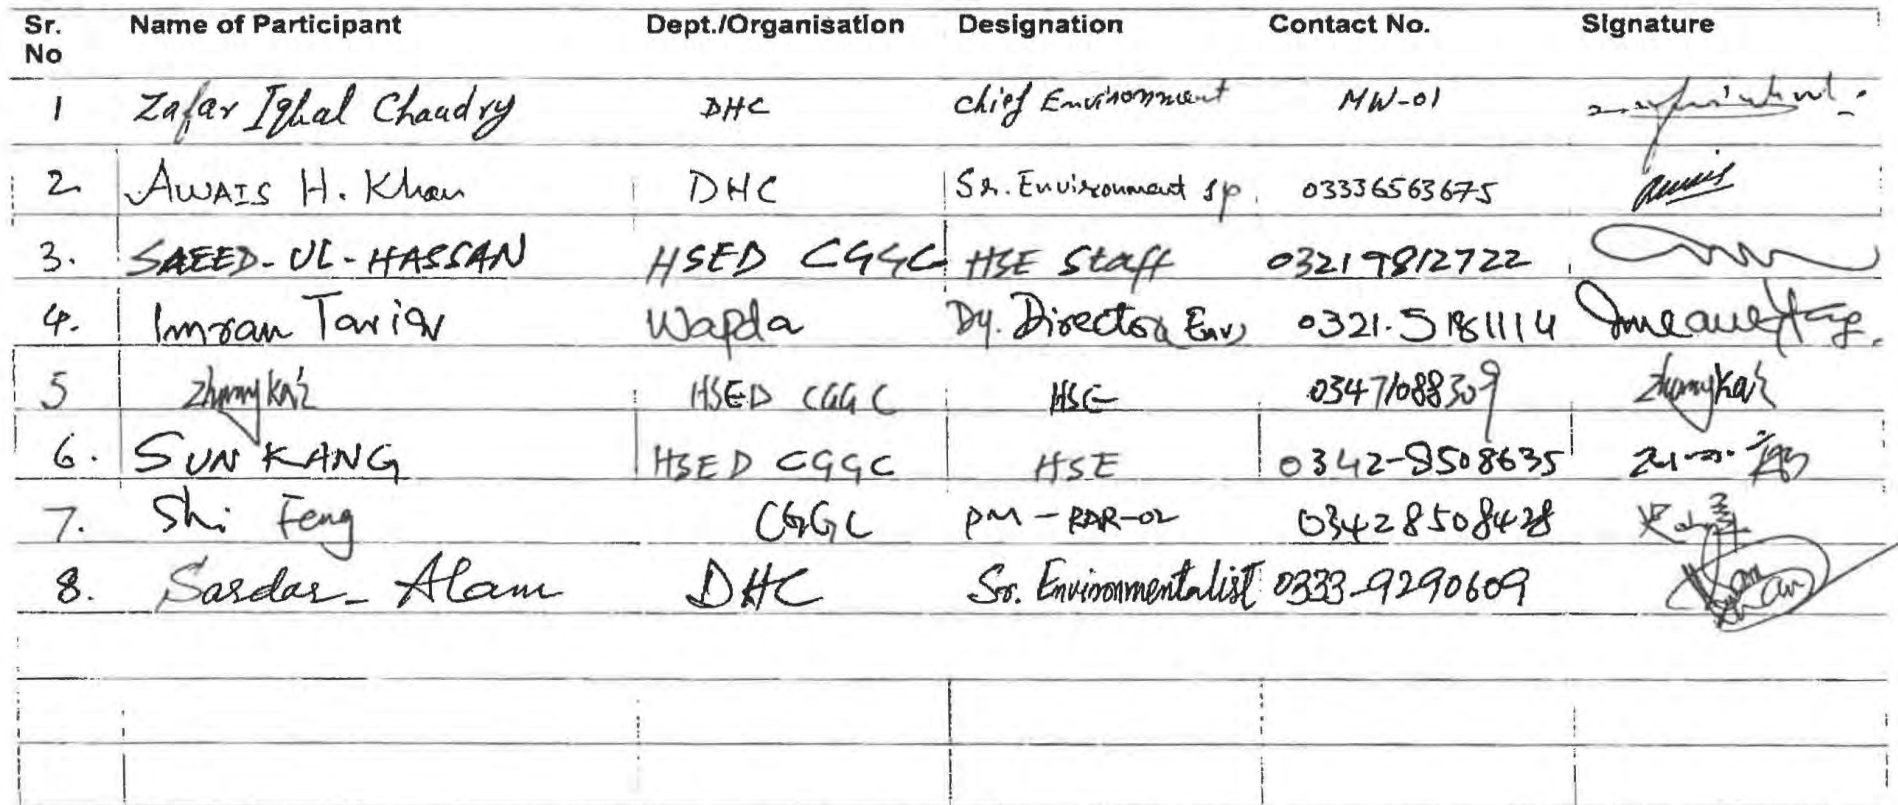 Sr. No Name of Participant Dept./Organisation Designation Contact No. Signature
1 Zafar Iqbal Chaudry DHC Chief Environment MW-01
2. AWAIS H. Khan DHC Sr. Environment sp. 03336563675 awais
3. SAEED-UL-HASSAN HSED CGGC HSE Staff 03219812722
4. Imran Tariq Wapda Dy. Director Env) 0321.5181114
5 Zhangkai HSED CGGC HSE 03471088309 Zhangkai
6. SUN KANG HSED CGGC HSE 0342-8508635
7. Shi Feng CGGC PM-RAR-02 03428508428
8. Sardar- Alam DHC Sr. Environmentalist 0333-9290609